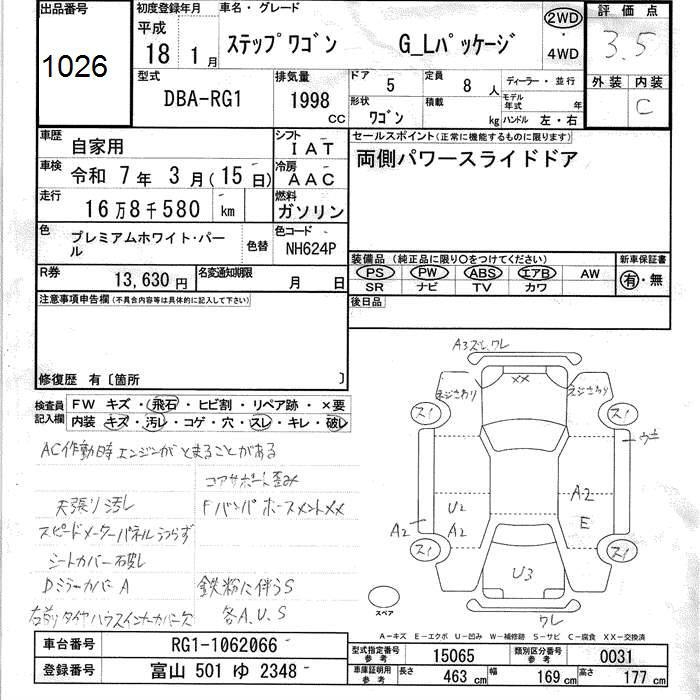 出品番号
1026
初度登録年月
平成
18 1月
車名・グレード
ステップワゴン G_Lパッケージ
2WD
・
4WD
評価点
3.5
型式
DBA-RG1
排気量
1998
CC
ドア 5
定員 8 人
ディーラー・並行
形状
ワゴン
積載 kg
モデル年式 年
ハンドル 左・右
外装 内装
C
車歴 自家用
シフト IAT
車検 令和 7年 3月(15日)
冷房 AAC
走行 16万8千580 km
燃料 ガソリン
色 プレミアムホワイト・パール
色替
色コード NH624P
R券 13,630円
名変通知期限 月 日
セールスポイント(正常に機能するものに限ります)
両側パワースライドドア
装備品(純正品に限り○をつけてください)
新車保証書
PS PW ABS エアB AW
SR ナビ TV カワ
有・無
後日品
注意事項申告欄(不具合内容等は具体的に記入して下さい)
修復歴 有〔箇所 〕
検査員記入欄
FW キズ・飛石・ヒビ割・リペア跡・×要
内装 キズ・汚レ・コゲ・穴・スレ・キレ・破レ
AC作動時エンジンがとまることがある
コアサポート歪み
天張り汚レ
FバンパホースメントXX
スピードメーターパネルうつらず
シートカバー破レ
DミラーカバーA
鉄粉に伴うS
右前タイヤハウスインナーカバー欠
各A、U、S
A3ズレ、ワレ
××
ネジさわり
ネジさわり
スノ
スノ
U2
A2
A2
A2
E
スノ
スノ
U3
ワレ
スペア
A-キズ E-エクボ U-凹み W-補修跡 S-サビ C-腐食 XX-交換済
車台番号 RG1-1062066
登録番号 富山 501 ゆ 2348
型式指定番号 参考 15065
類別区分番号 参考 0031
車庫証明用 参考 長さ 463 cm 幅 169 cm 高さ 177 cm